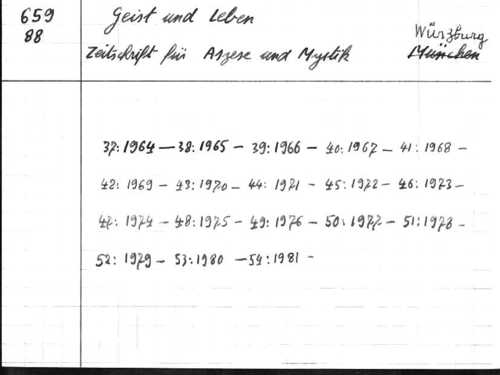 659
88
Geist und Leben
Zeitschrift für Aszese und Mystik
Würzburg
München
37:1964 – 38:1965 – 39:1966 – 40:1967 – 41:1968 –
42:1969 – 43:1970 – 44:1971 – 45:1972 – 46:1973 –
47:1974 – 48:1975 – 49:1976 – 50:1977 – 51:1978 –
52:1979 – 53:1980 – 54:1981 –